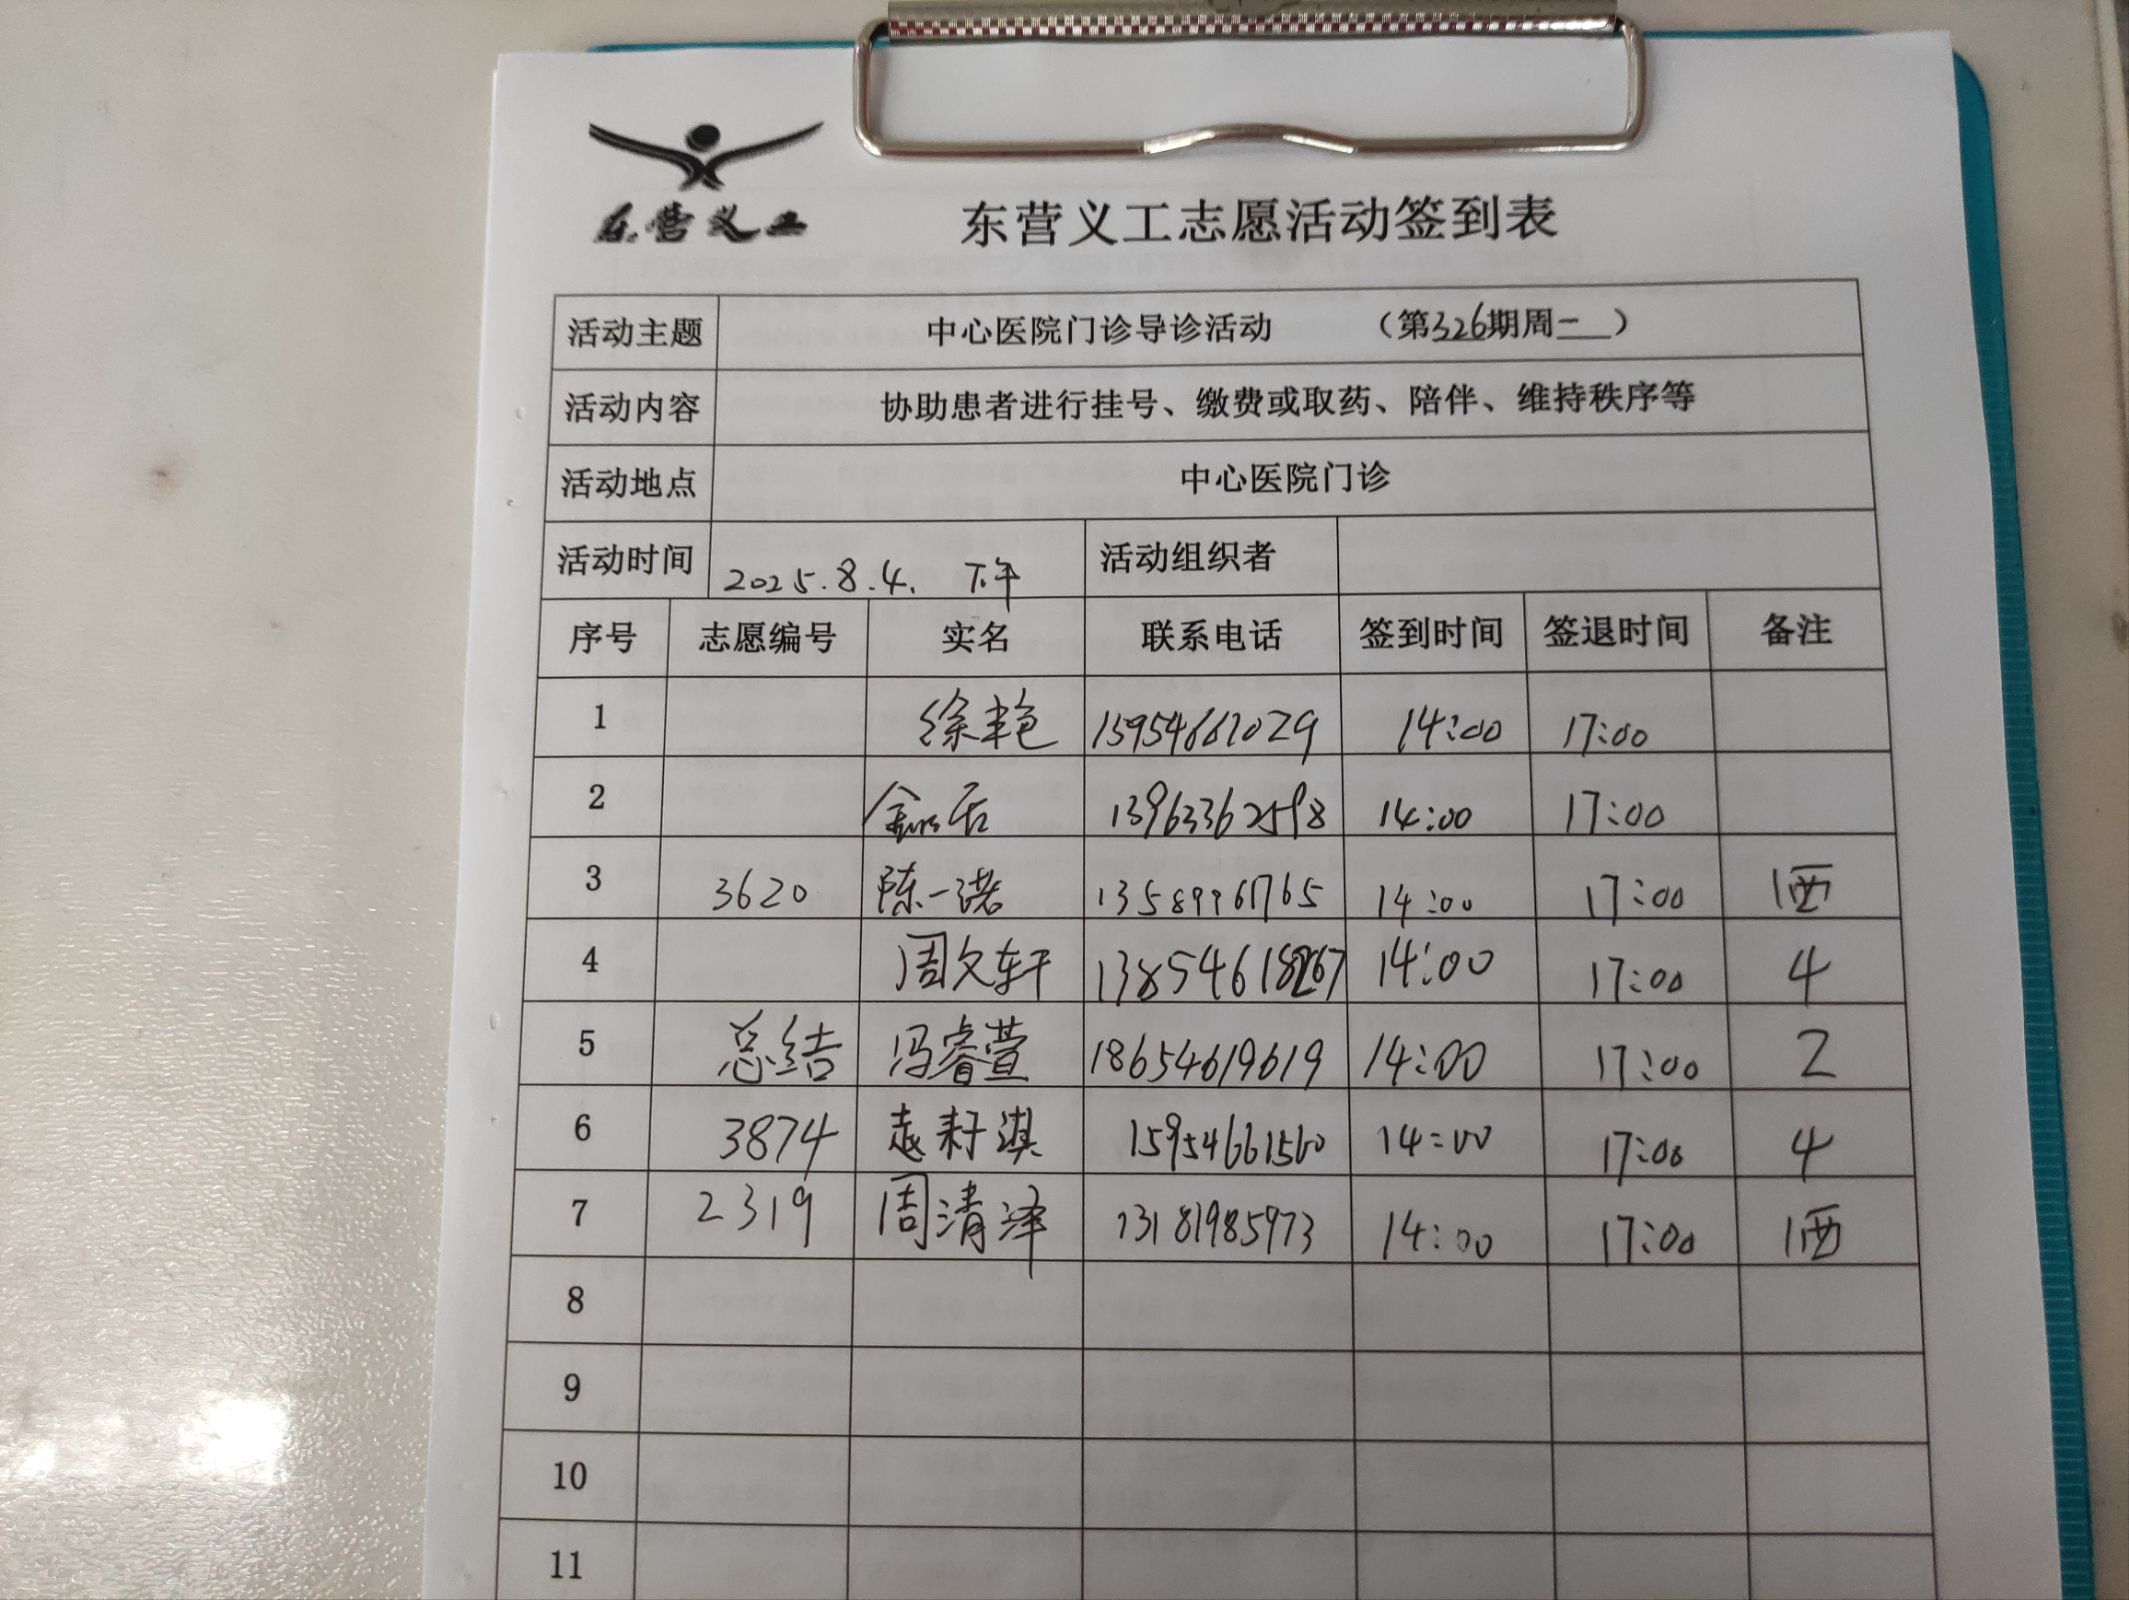 东营义工
东营义工志愿活动签到表
活动主题 中心医院门诊导诊活动 （第326期周一）
活动内容 协助患者进行挂号、缴费或取药、陪伴、维持秩序等
活动地点 中心医院门诊
活动时间 2025.8.4. 下午 活动组织者
序号 志愿编号 实名 联系电话 签到时间 签退时间 备注
1 徐艳 15954661029 14:00 17:00
2 13963362598 14:00 17:00
3 3620 陈一诺 13589961765 14:00 17:00 1西
4 周文轩 14:00 17:00 4
5 总结 冯睿萱 18654619619 14:00 17:00 2
6 3874 赵籽淇 15954661560 14:00 17:00 4
7 2319 周清泽 13181985973 14:00 17:00 1西
8
9
10
11